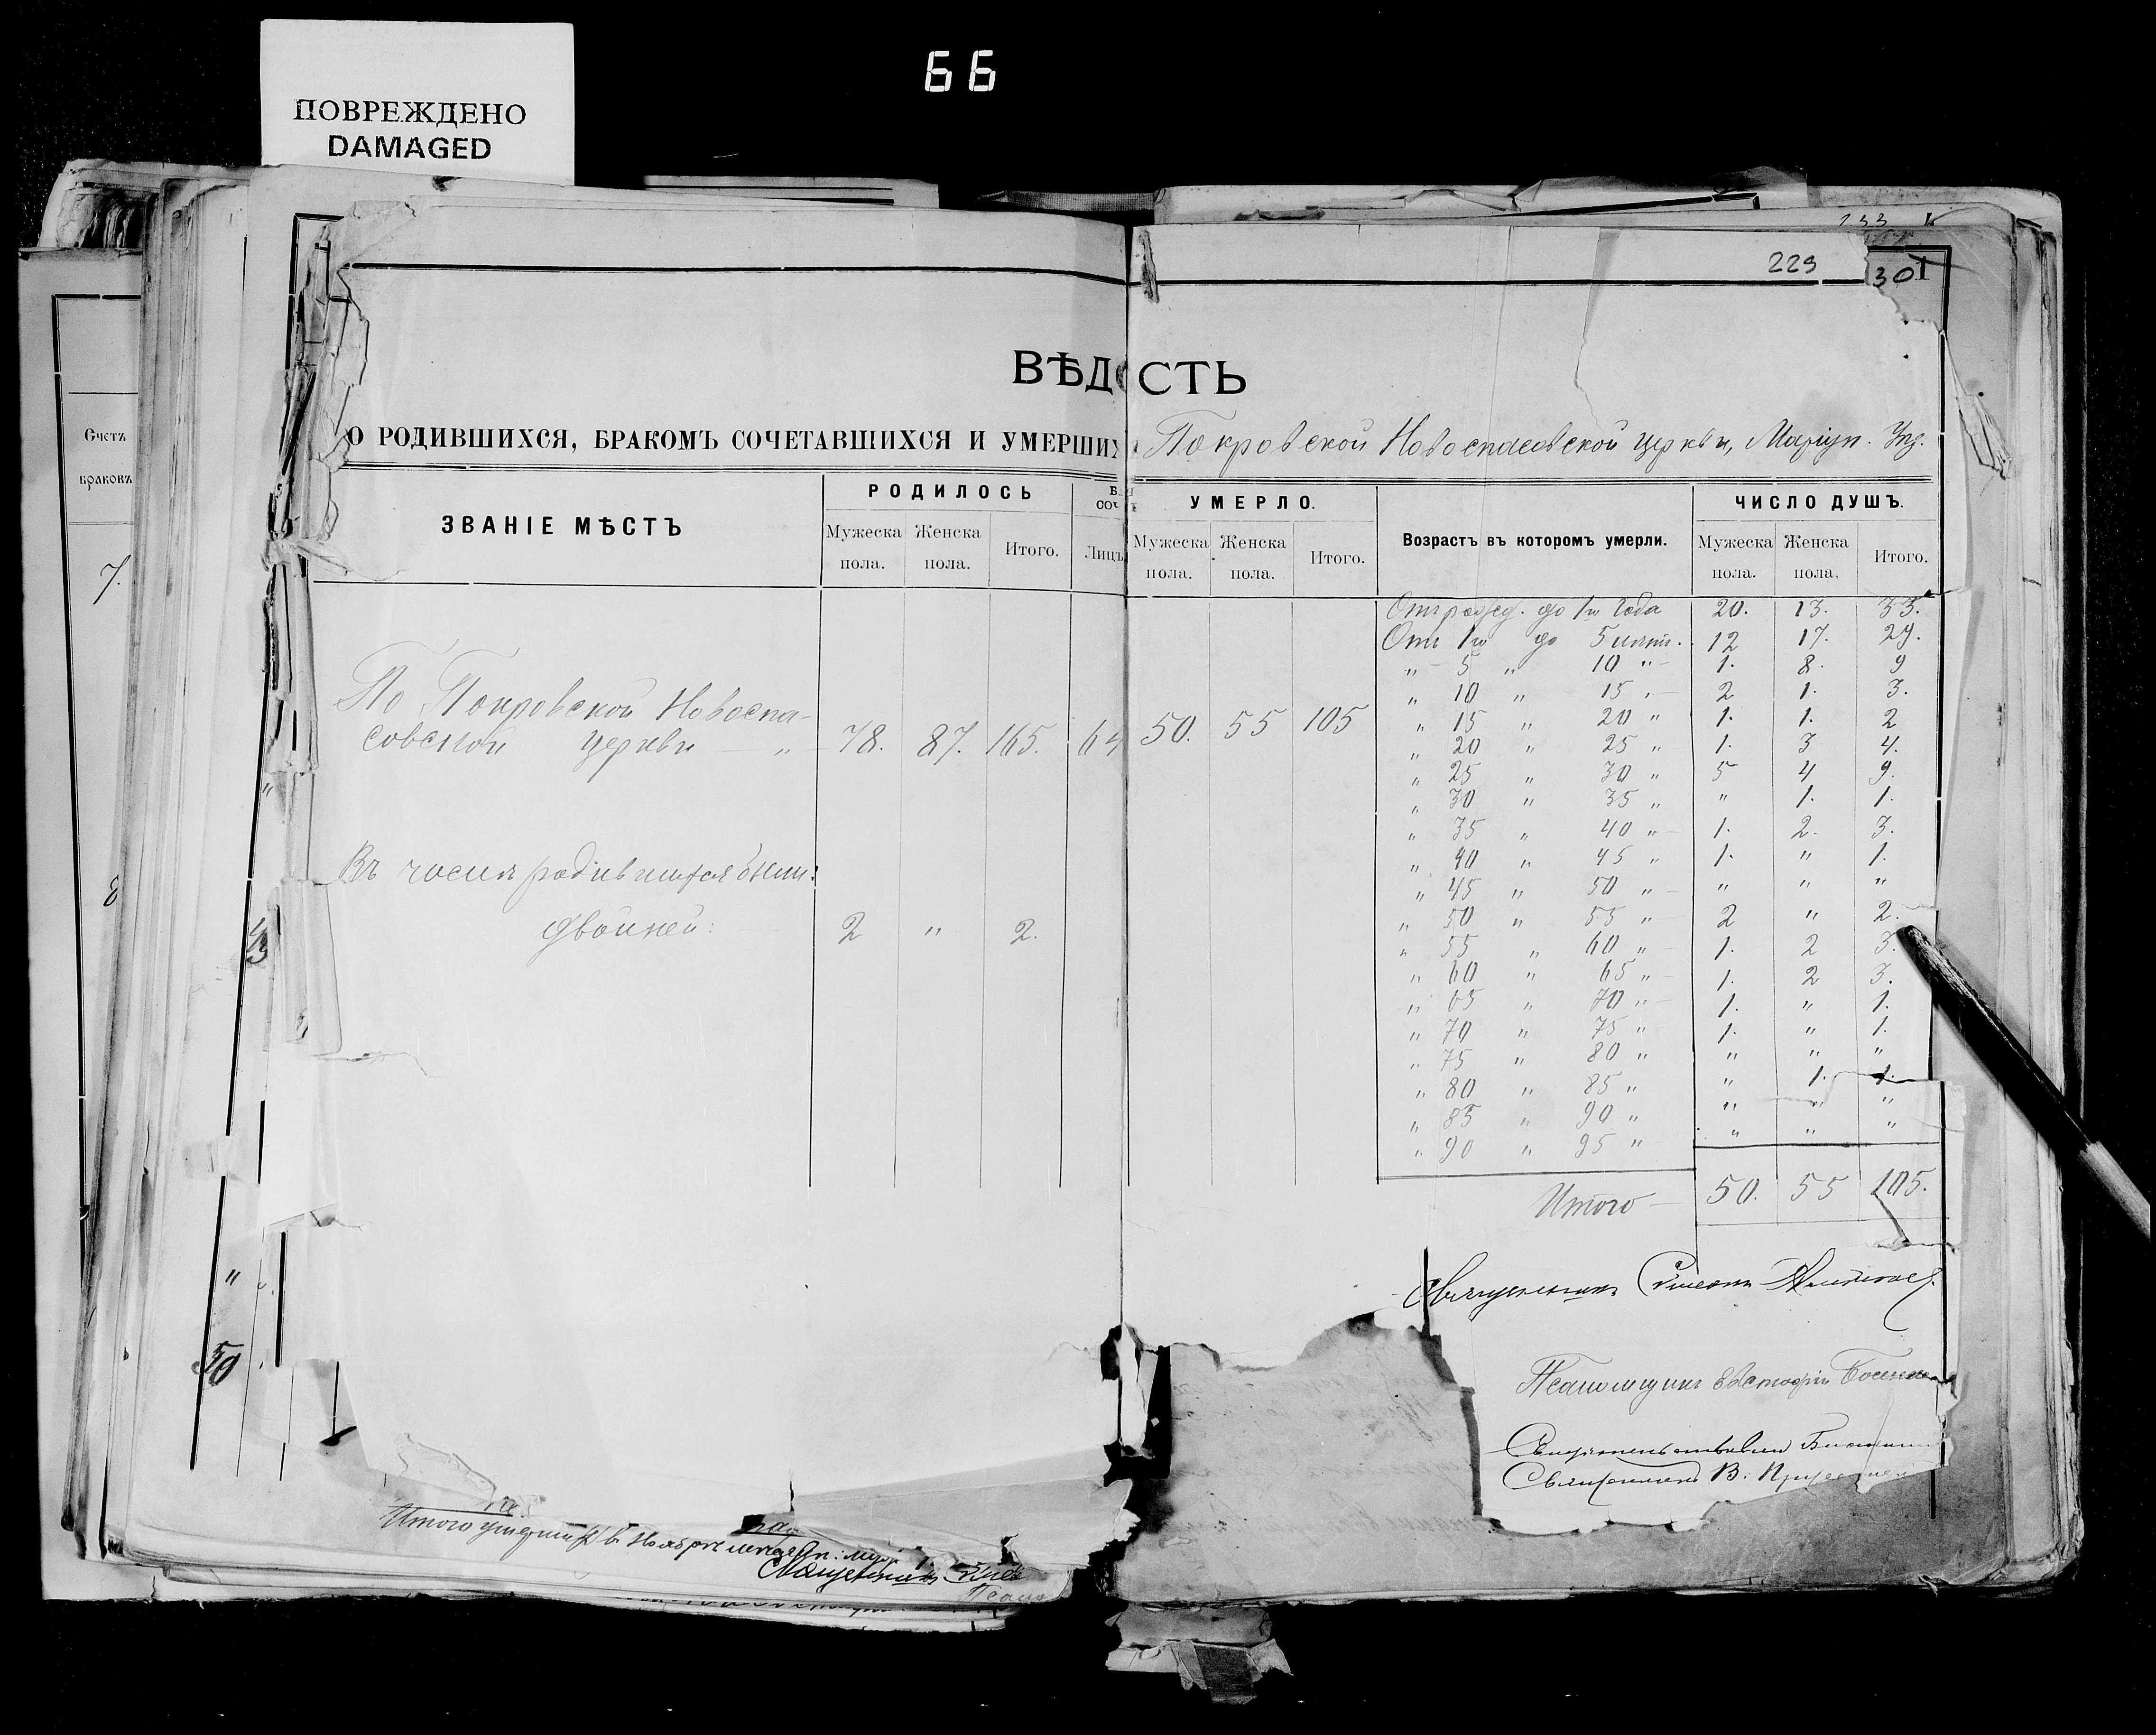 66
ПОВРЕЖДЕНО
DAMAGED
Счетъ
браковъ
7.
229
301
ВѢДОСТЬ
О РОДИВШИХСЯ, БРАКОМЪ СОЧЕТАВШИХСЯ И УМЕРШИХ Покровской Новоспасовской церкви, Маріуп. Уѣз.
ЗВАНІЕ МѢСТЪ
РОДИЛОСЬ
Мужеска пола.
Женска пола.
Итого.
Лицъ
УМЕРЛО.
Мужеска пола.
Женска пола.
Итого.
Возрастъ въ которомъ умерли.
ЧИСЛО ДУШЪ.
Мужеска пола.
Женска пола,
Итого.
По Покровской Новоспа-
совской церкви — „ 78. 87. 165. 64 50. 55 105
Въ числѣ родившихся были:
двойней: 2 „ 2.
Отъ рожд. до 1го года 20. 13. 33.
Отъ 1го до 5 лѣтъ. 12 17. 29.
„ 5 „ 10 „ 1. 8. 9
„ 10 „ 15 „ 2 1. 3.
„ 15 „ 20 „ 1. 1. 2
„ 20 „ 25 „ 1. 3 4.
„ 25 „ 30 „ 5 4 9.
„ 30 „ 35 „ „ 1. 1.
„ 35 „ 40 „ 1. 2. 3.
„ 40 „ 45 „ 1. „ 1.
„ 45 „ 50 „ „ „ „
„ 50 „ 55 „ 2 „ 2.
„ 55 „ 60 „ 1. 2 3.
„ 60 „ 65 „ 1. 2 3.
„ 65 „ 70 „ 1. „ 1.
„ 70 „ 75 „ 1. „ 1.
„ 75 „ 80 „ „ „ „
„ 80 „ 85 „ „ 1. 1.
„ 85 „ 90 „ „ „ „
„ 90 „ 95 „ „ „ „
Итого — 50. 55 105.
Священникъ Симеонъ
Псаломщикъ Евстафій
Священникъ В.
50
Итого умершихъ въ Ноябрѣ мѣсяцѣ
Священникъ